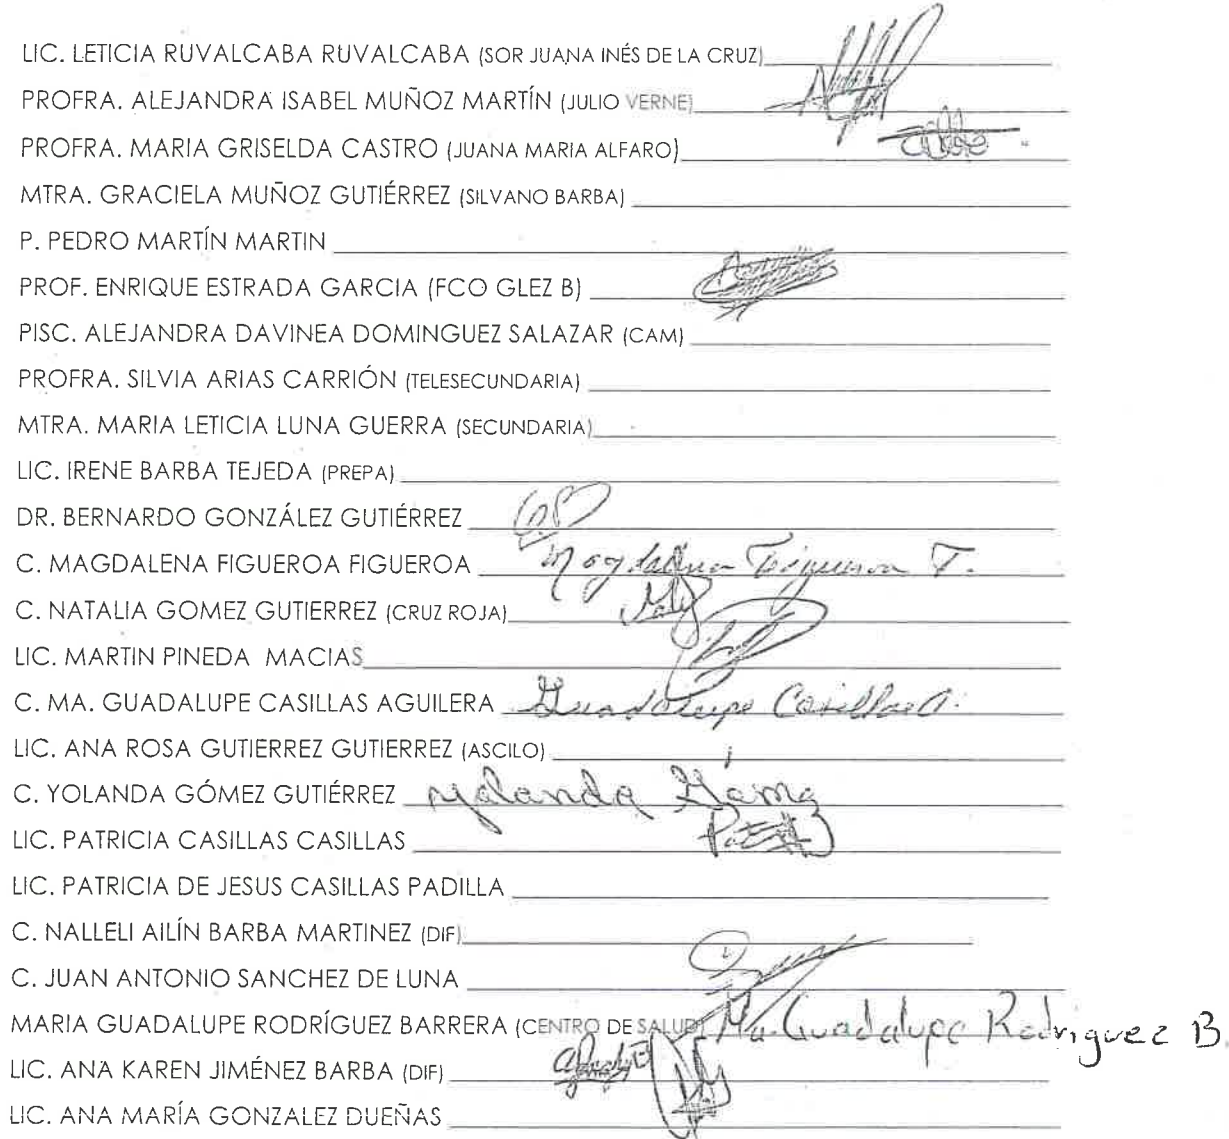 LIC. LETICIA RUVALCABA RUVALCABA (SOR JUANA INÉS DE LA CRUZ)
PROFRA. ALEJANDRA ISABEL MUÑOZ MARTÍN (JULIO VERNE)
PROFRA. MARIA GRISELDA CASTRO (JUANA MARIA ALFARO)
MTRA. GRACIELA MUÑOZ GUTIÉRREZ (SILVANO BARBA)
P. PEDRO MARTÍN MARTIN
PROF. ENRIQUE ESTRADA GARCIA (FCO GLEZ B)
PISC. ALEJANDRA DAVINEA DOMINGUEZ SALAZAR (CAM)
PROFRA. SILVIA ARIAS CARRIÓN (TELESECUNDARIA)
MTRA. MARIA LETICIA LUNA GUERRA (SECUNDARIA)
LIC. IRENE BARBA TEJEDA (PREPA)
DR. BERNARDO GONZÁLEZ GUTIÉRREZ
C. MAGDALENA FIGUEROA FIGUEROA Magdalena Figueroa F.
C. NATALIA GOMEZ GUTIERREZ (CRUZ ROJA) Naty
LIC. MARTIN PINEDA MACIAS
C. MA. GUADALUPE CASILLAS AGUILERA Guadalupe Casillas A.
LIC. ANA ROSA GUTIERREZ GUTIERREZ (ASCILO)
C. YOLANDA GÓMEZ GUTIÉRREZ Yolanda Góme
LIC. PATRICIA CASILLAS CASILLAS
LIC. PATRICIA DE JESUS CASILLAS PADILLA
C. NALLELI AILÍN BARBA MARTINEZ (DIF)
C. JUAN ANTONIO SANCHEZ DE LUNA
MARIA GUADALUPE RODRÍGUEZ BARRERA (CENTRO DE SALUD) Ma. Guadalupe Rodriguez B.
LIC. ANA KAREN JIMÉNEZ BARBA (DIF)
LIC. ANA MARÍA GONZALEZ DUEÑAS